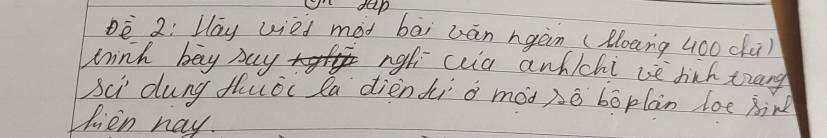 đáp
Đề 2: Hãy viết một bài văn ngắn (khoảng 400 chữ)
trình bày suy nghĩ của anh/chị về tình trạng
sử dụng thuốc lá điện tử ở một số bộ phận học sinh
hiện nay.